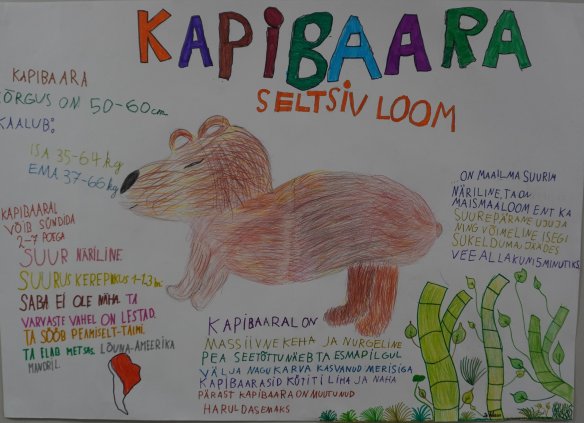 KAPIBAARA
SELTSIV LOOM
KAPIBAARA
KÕRGUS ON 50-60cm
KAALUB:
ISA 35-64 kg
EMA 37-66 kg
KAPIBAARAL
VÕIB SÜNDIDA
2-7 POEGA
SUUR NÄRILINE
SUURUS KEREPIKKUS 1-1.3 m
SABA EI OLE NÄHA TA
VARVASTE VAHEL ON LESTAD.
TA SÖÖB PEAMISELT TAIMI.
TA ELAB METSAS. LÕUNA-AMEERIKA
MANDRIL.
ON MAAILMA SUURIM
NÄRILINE, TA ON
MAISMAALOOM ENT KA
SUUREPÄRANE UJUJA
NING VÕIMELINE ISEGI
SUKELDUMA, JÄÄDES
VEE ALLA KUNI 5 MINUTIKS.
KAPIBAARAL ON
MASSIIVNE KEHA JA NURGELINE
PEA SEETÕTTU NÄEB TA ESMAPILGUL
VÄLJA NAGU KARVA KASVANUD MERISIGA
KAPIBAARASID KÜTITI LIHA JA NAHA
PÄRAST KAPIBAARA ON MUUTUNUD
HARULDASEMAKS